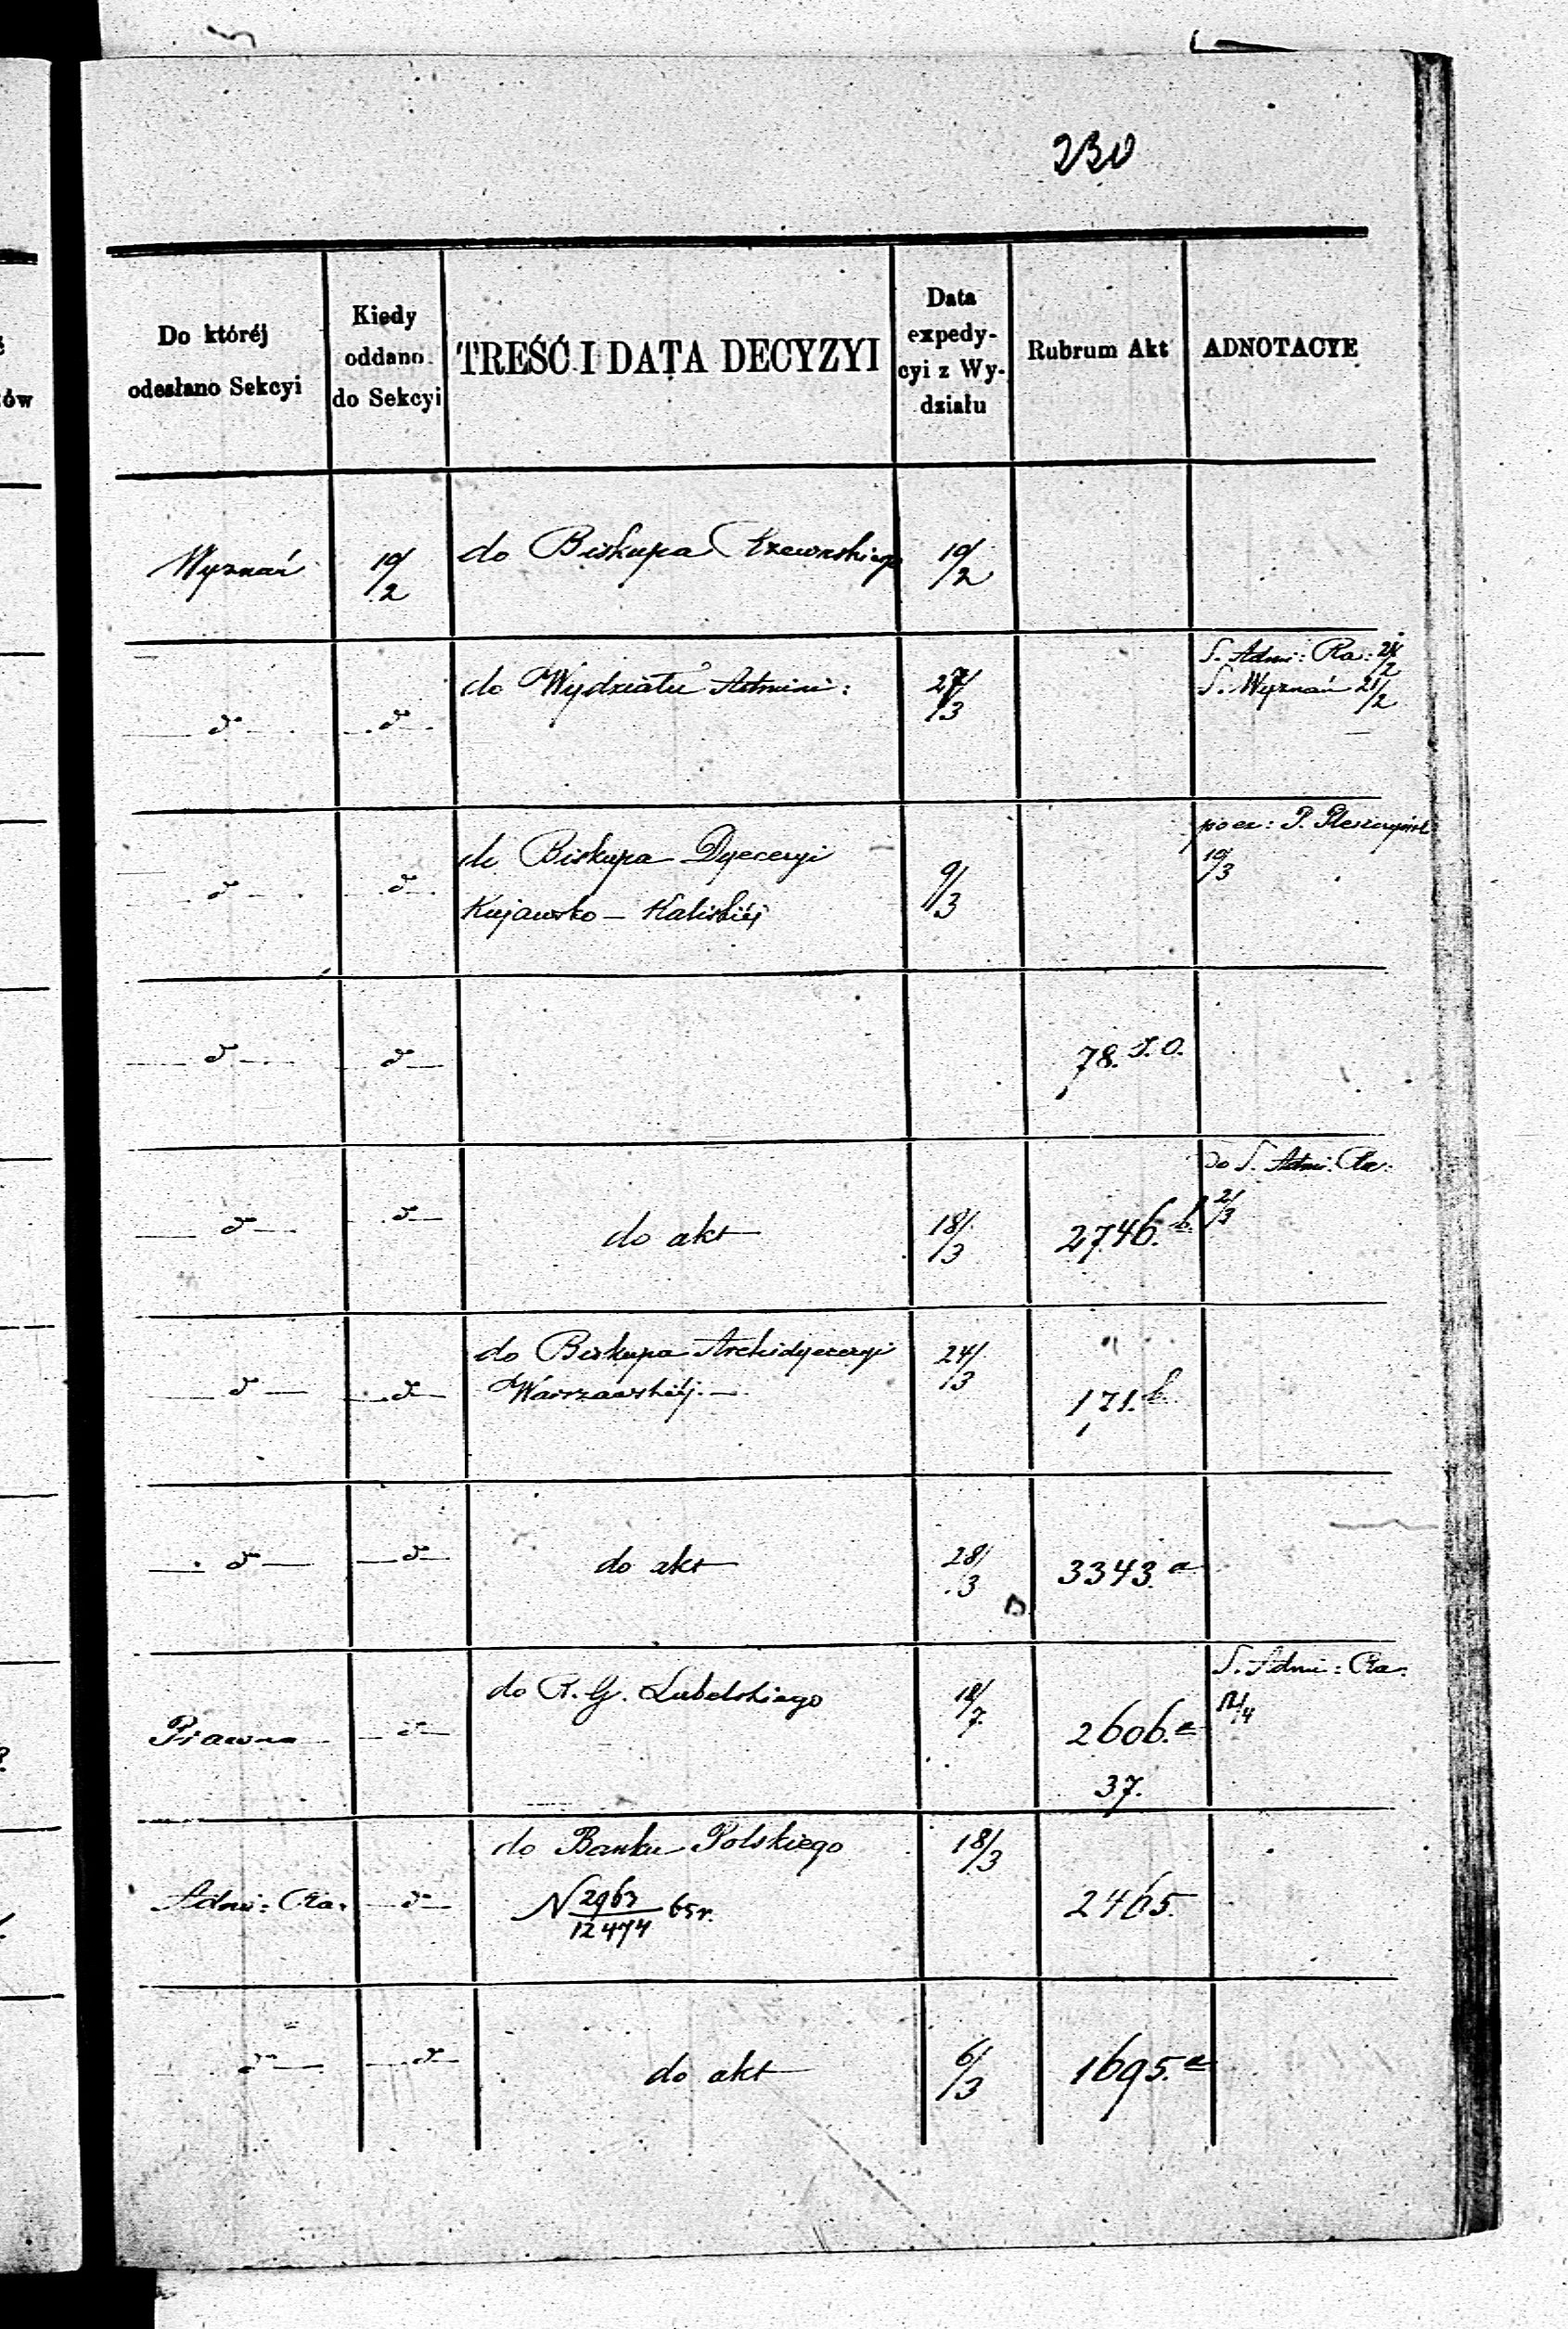 230
Do któréj
odesłano Sekcyi
Kiedy
oddano
do Sekcyi
TREŚĆ I DATA DECYZYI
Data
expedy-
cyi z Wy-
działu
Rubrum Akt
ADNOTACYE
ów
Wyznań
19/2
do Biskupa
19/2
do Wydziału Admini:
27/3
S. Admi: Ra:
S. Wyznań 21/2
do Biskupa Dyecezyi
Kujawsko – Kaliskiéj
9/3
19/3
78.
do akt
18/3
2746. b.
Do S. Admi: Ra:
2/3
do Biskupa Archidyecezyi
Warszawskiéj. —
24/3
171. b.
do akt
28/3
3343. a
Prawna
do R. G. Lubelskiego
18/7
2606. a
37.
S. Admi: Ra:
12/4
Admi: Ra.
do Banku Polskiego
N 2967/12474 65 r.
18/3
2465.
do akt
6/3
1695. a